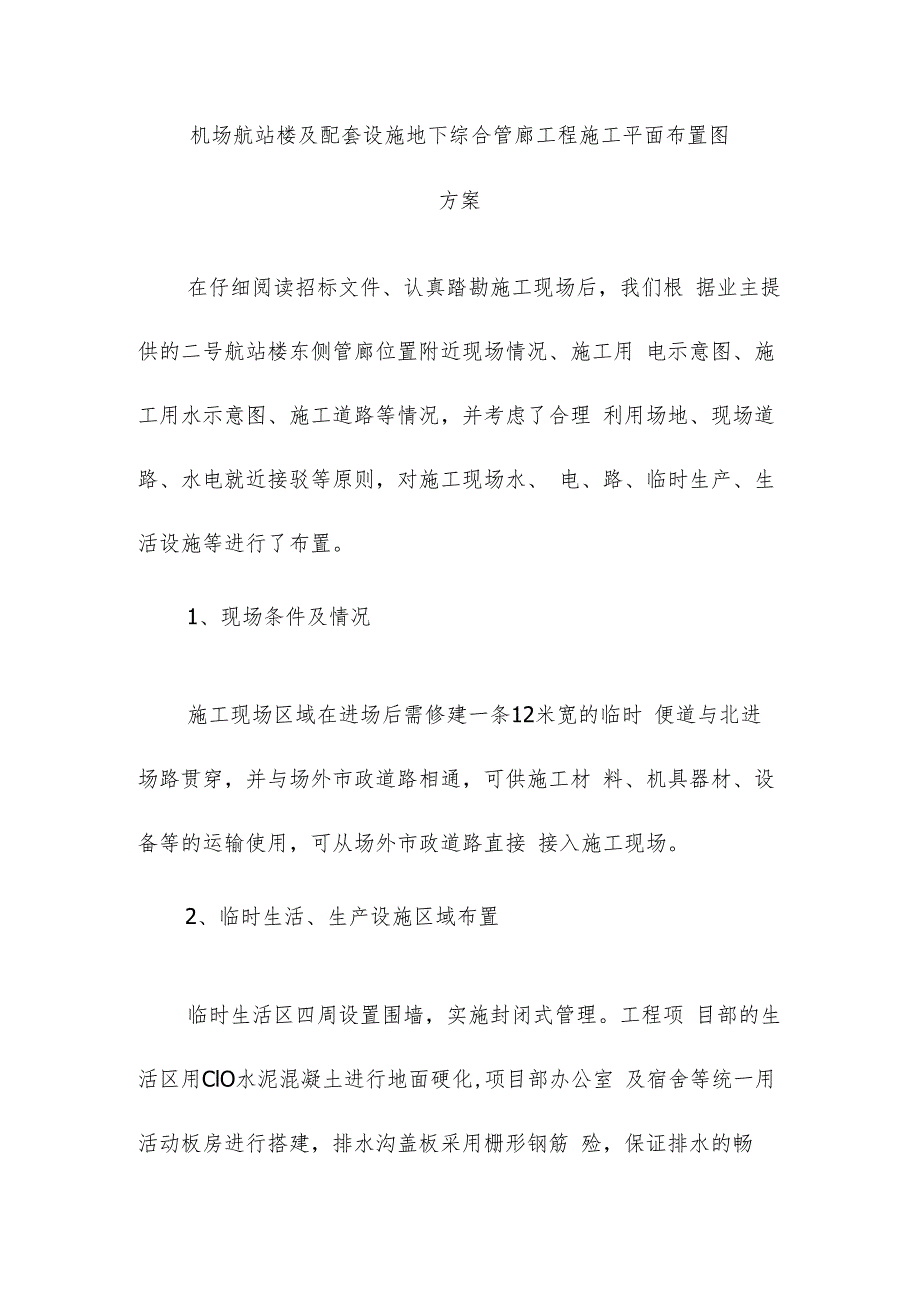 机场航站楼及配套设施地下综合管廊工程施工平面布置图
方案
在仔细阅读招标文件、认真踏勘施工现场后，我们根 据业主提
供的二号航站楼东侧管廊位置附近现场情况、施工用 电示意图、施
工用水示意图、施工道路等情况，并考虑了合理 利用场地、现场道
路、水电就近接驳等原则，对施工现场水、 电、路、临时生产、生
活设施等进行了布置。
1、现场条件及情况
施工现场区域在进场后需修建一条12米宽的临时 便道与北进
场路贯穿，并与场外市政道路相通，可供施工材 料、机具器材、设
备等的运输使用，可从场外市政道路直接 接入施工现场。
2、临时生活、生产设施区域布置
临时生活区四周设置围墙，实施封闭式管理。工程项 目部的生
活区用ClO水泥混凝土进行地面硬化,项目部办公室 及宿舍等统一用
活动板房进行搭建，排水沟盖板采用栅形钢筋 殓，保证排水的畅